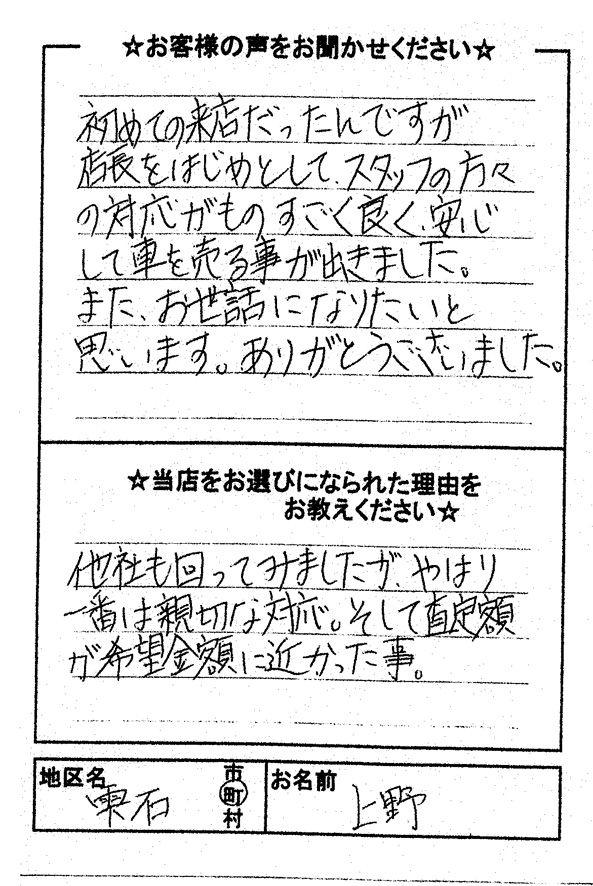 ☆お客様の声をお聞かせください☆
初めての来店だったんですが
店長をはじめとして、スタッフの方々
の対応がものすごく良く、安心
して車を売る事が出きました。
また、お世話になりたいと
思います。ありがとうございました。
☆当店をお選びになられた理由を
お教えください☆
他社も回ってみましたが、やはり
一番は親切な対応。そして査定額
が希望金額に近かった事。
地区名 雫石 市町村
お名前 上野